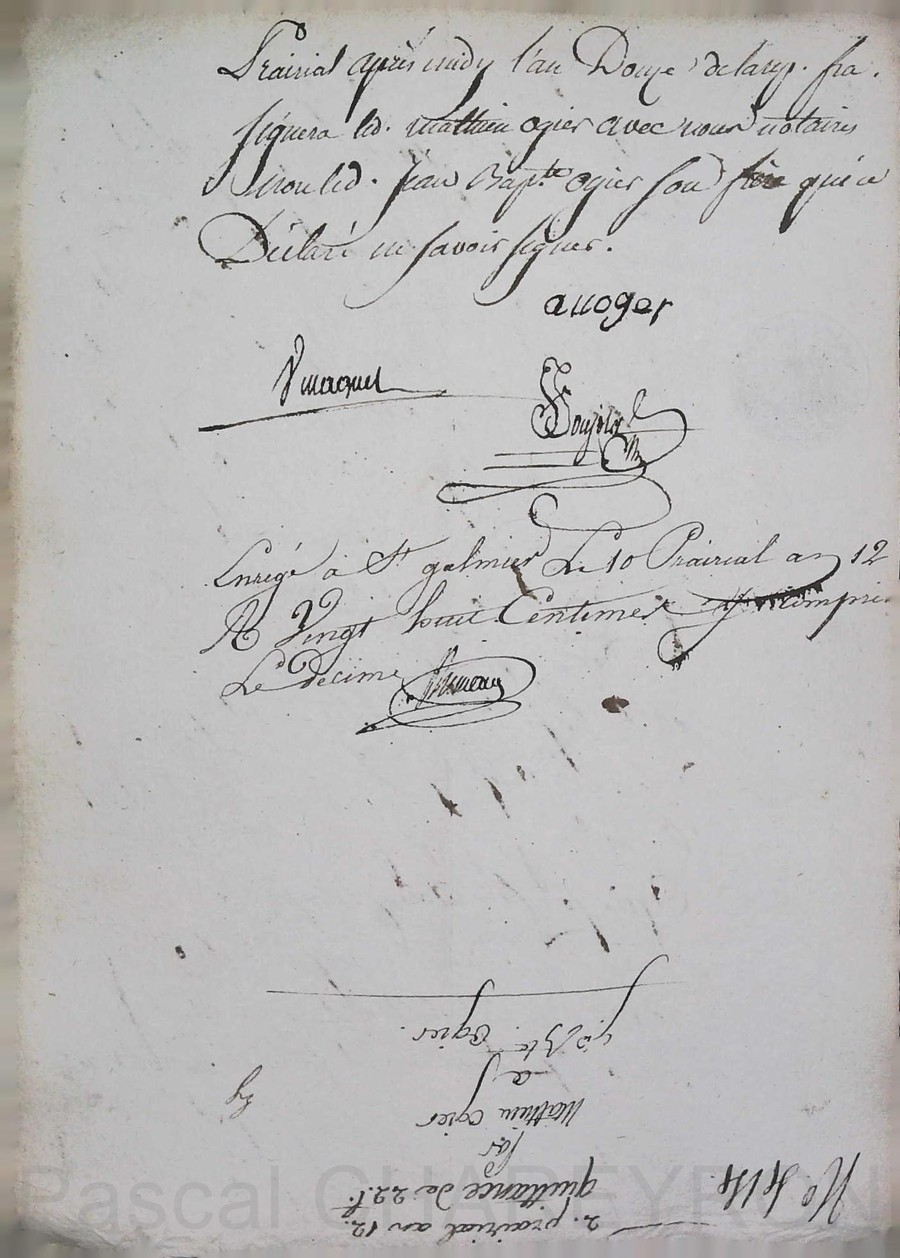 Prairial après midy l'an Douze de la rep. fra.
signera led. mathieu ogier avec nous notaires
non led. jean Bap.te ogier son frère qui a
Déclaré ne savoir signer.
auoger
Vinaquel
Enregé à St galmier Le 10 Prairial an 12
R vingt huit Centimes y compris
Le Décime
2. prairial an 12.
quittance de 22 f.
par
Mathieu Ogier
a
J. Bte Ogier.
N°
Pascal CHAREYRON